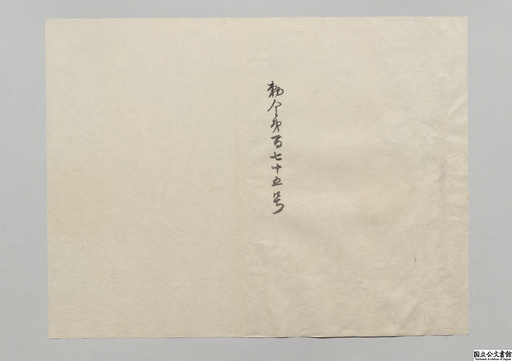 勅令第百七十五号
国立公文書館
National Archives of Japan